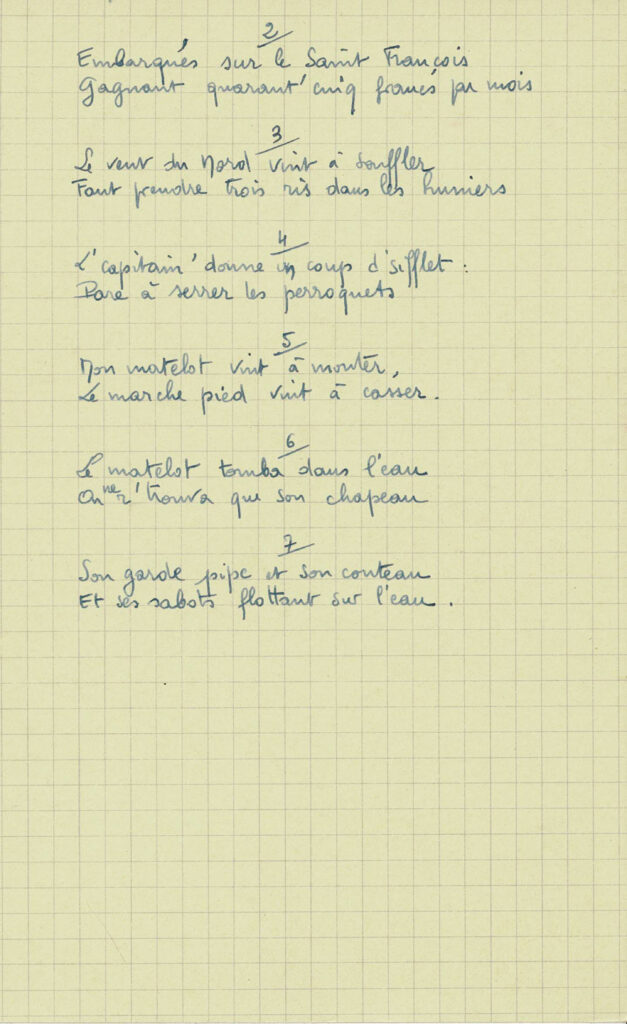 2
Embarqués sur le Saint François
Gagnant quarant' cinq francs par mois
3
Le vent du Nord vint à souffler
Faut prendre trois ris dans les huniers
4
L'capitain' donne un coup d'sifflet :
Pare à serrer les perroquets
5
Mon matelot vint à monter,
Le marche pied vint à casser.
6
Le matelot tomba dans l'eau
On ne r'trouva que son chapeau
7
Son garde pipe et son couteau
Et ses sabots flottant sur l'eau.